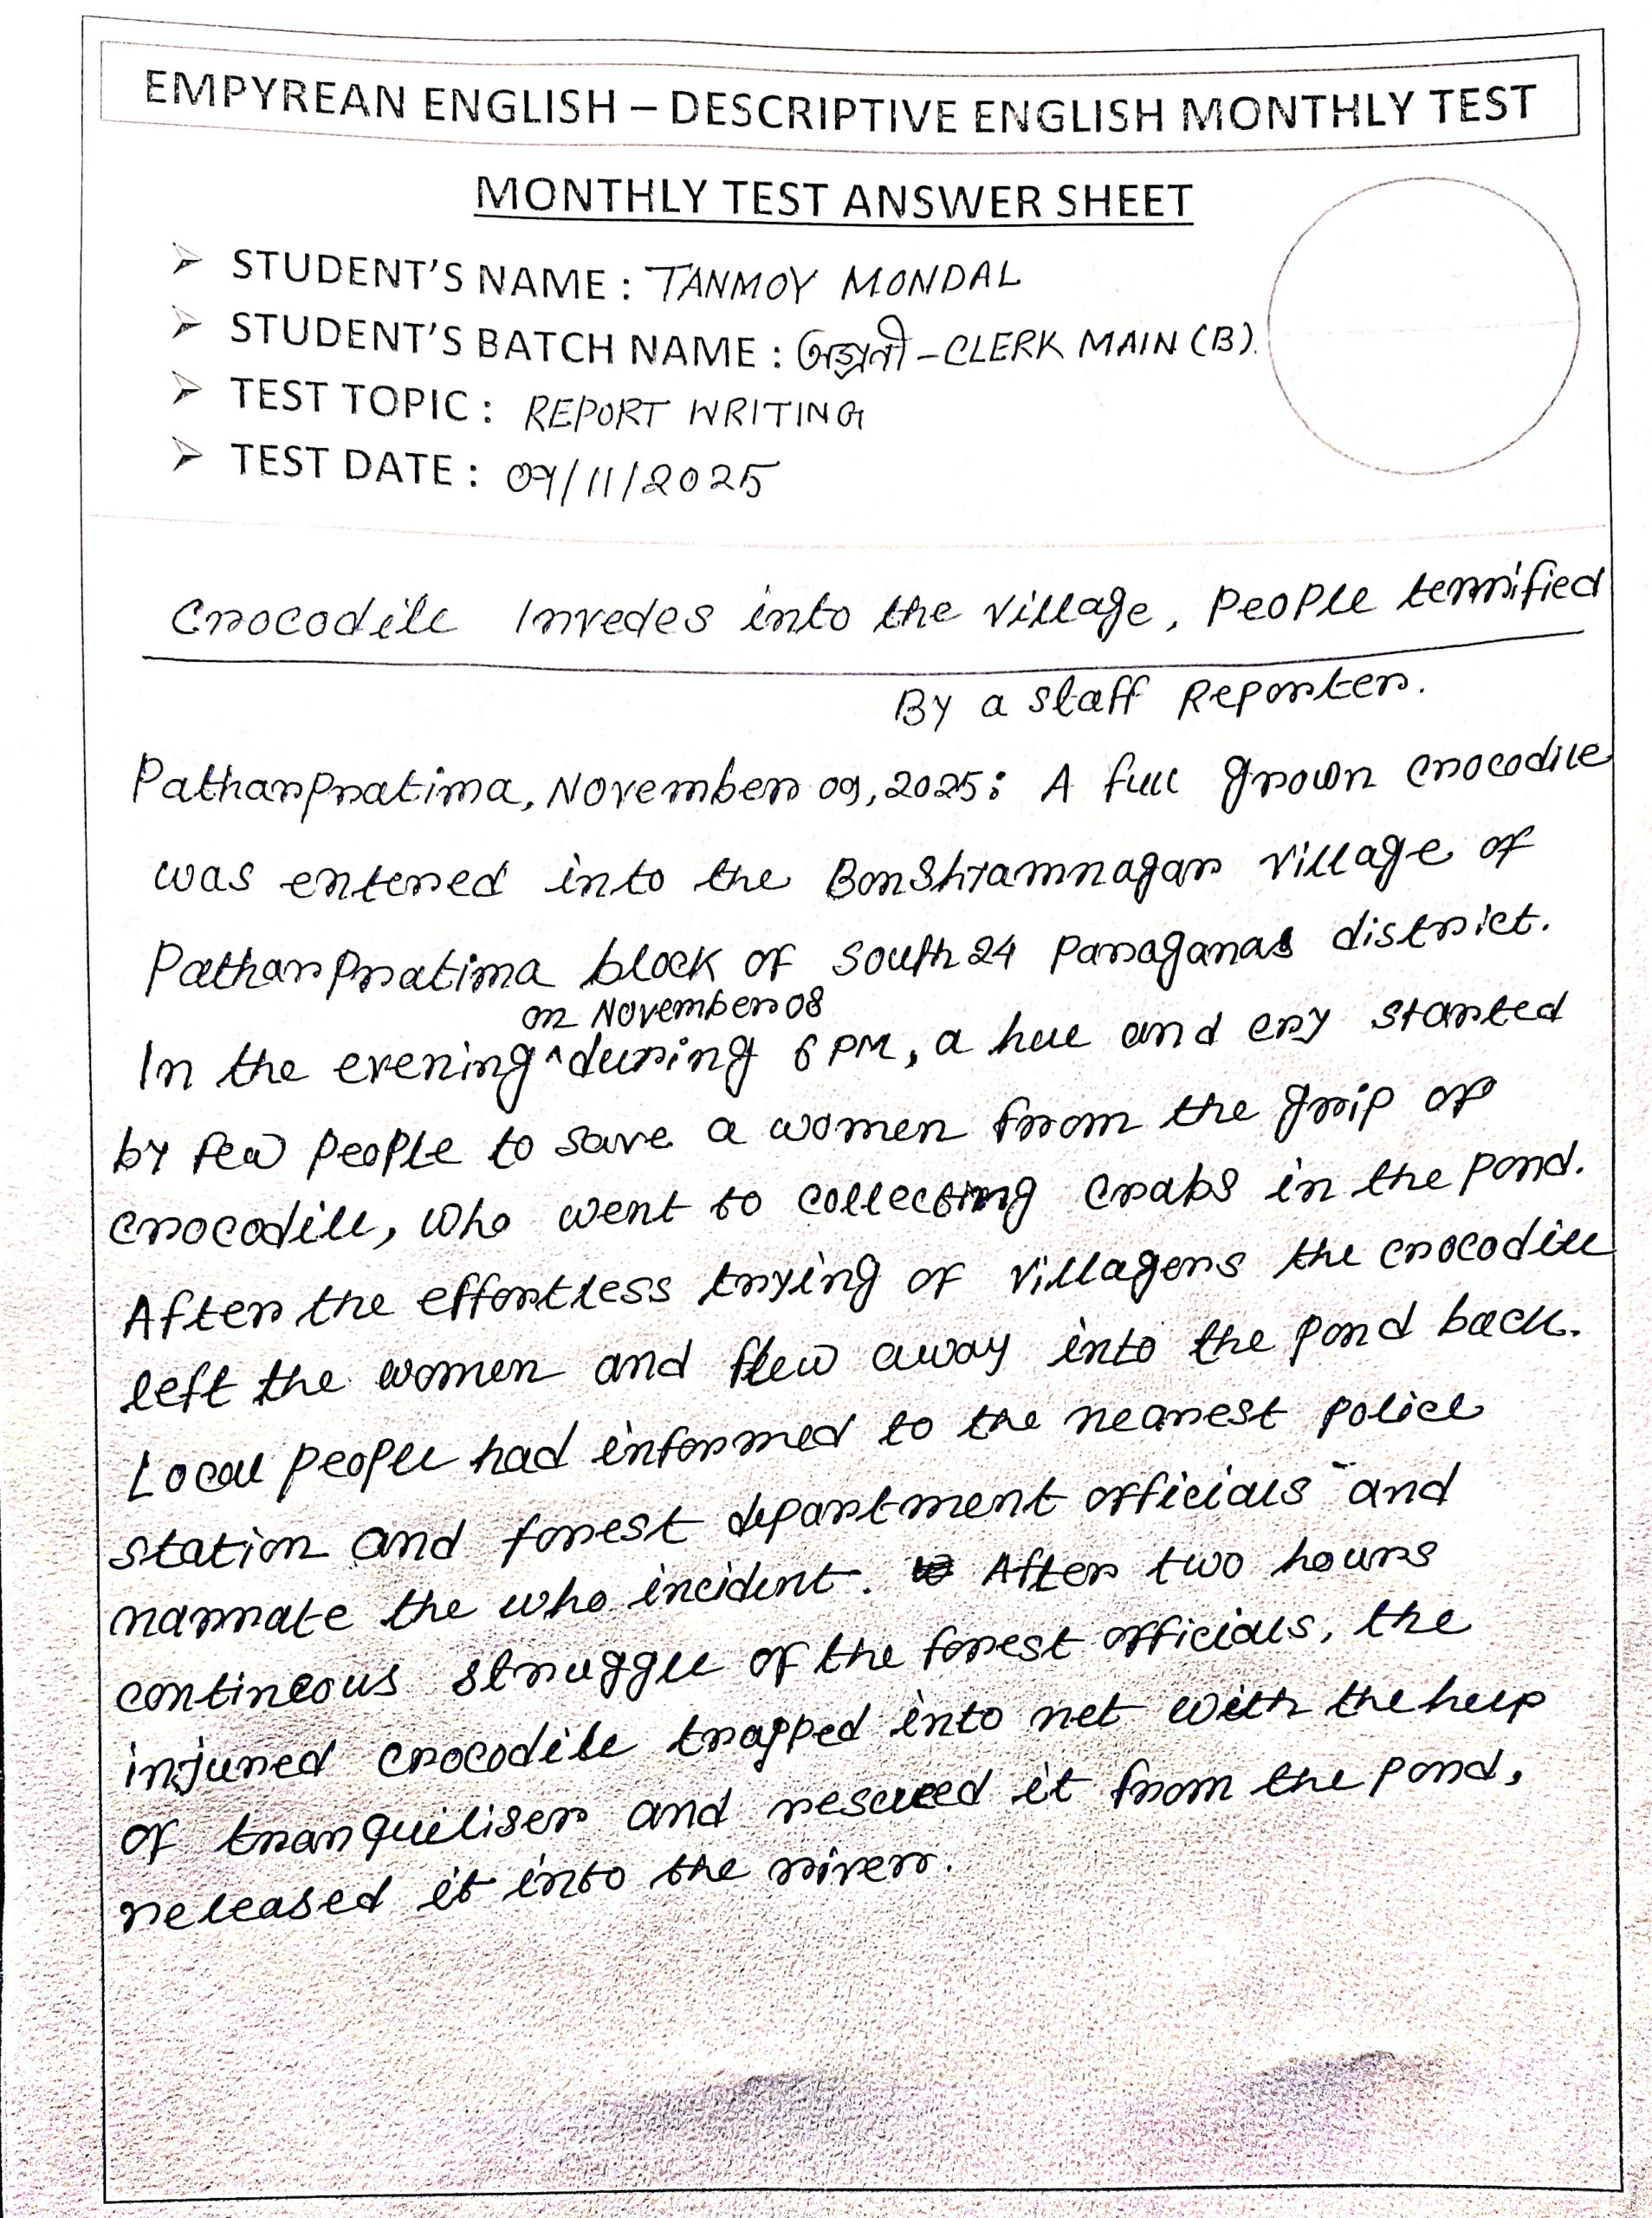 EMPYREAN ENGLISH – DESCRIPTIVE ENGLISH MONTHLY TEST
MONTHLY TEST ANSWER SHEET
➢ STUDENT'S NAME : TANMOY MONDAL
➢ STUDENT'S BATCH NAME : অগ্রণী - CLERK MAIN (B).
➢ TEST TOPIC : REPORT WRITING
➢ TEST DATE : 09/11/2025
Crocodile Invedes into the village, People terrified
By a staff Reporter.
Patharpratima, November 09, 2025: A full grown crocodile
was entered into the Bonshyamnagar village of
Patharpratima block of South 24 Paraganas district.
on November 08
In the evening ^ during 6 PM, a hue and cry started
by few people to save a women from the grip of
crocodile, who went to collecting crabs in the pond.
After the effortless trying of villagers the crocodile
left the women and flew away into the pond back.
Local people had informed to the nearest police
station and forest department officials and
narrate the who incident. After two hours
contineous struggle of the forest officials, the
injured crocodile trapped into net with the help
of tranquiliser and rescued it from the pond,
released it into the river.